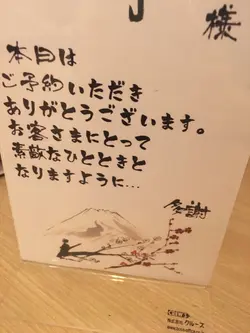 様
本日は
ご予約いただき
ありがとうございます。
お客さまにとって
素敵なひとときと
なりますように…
多謝
株式会社クルーズ